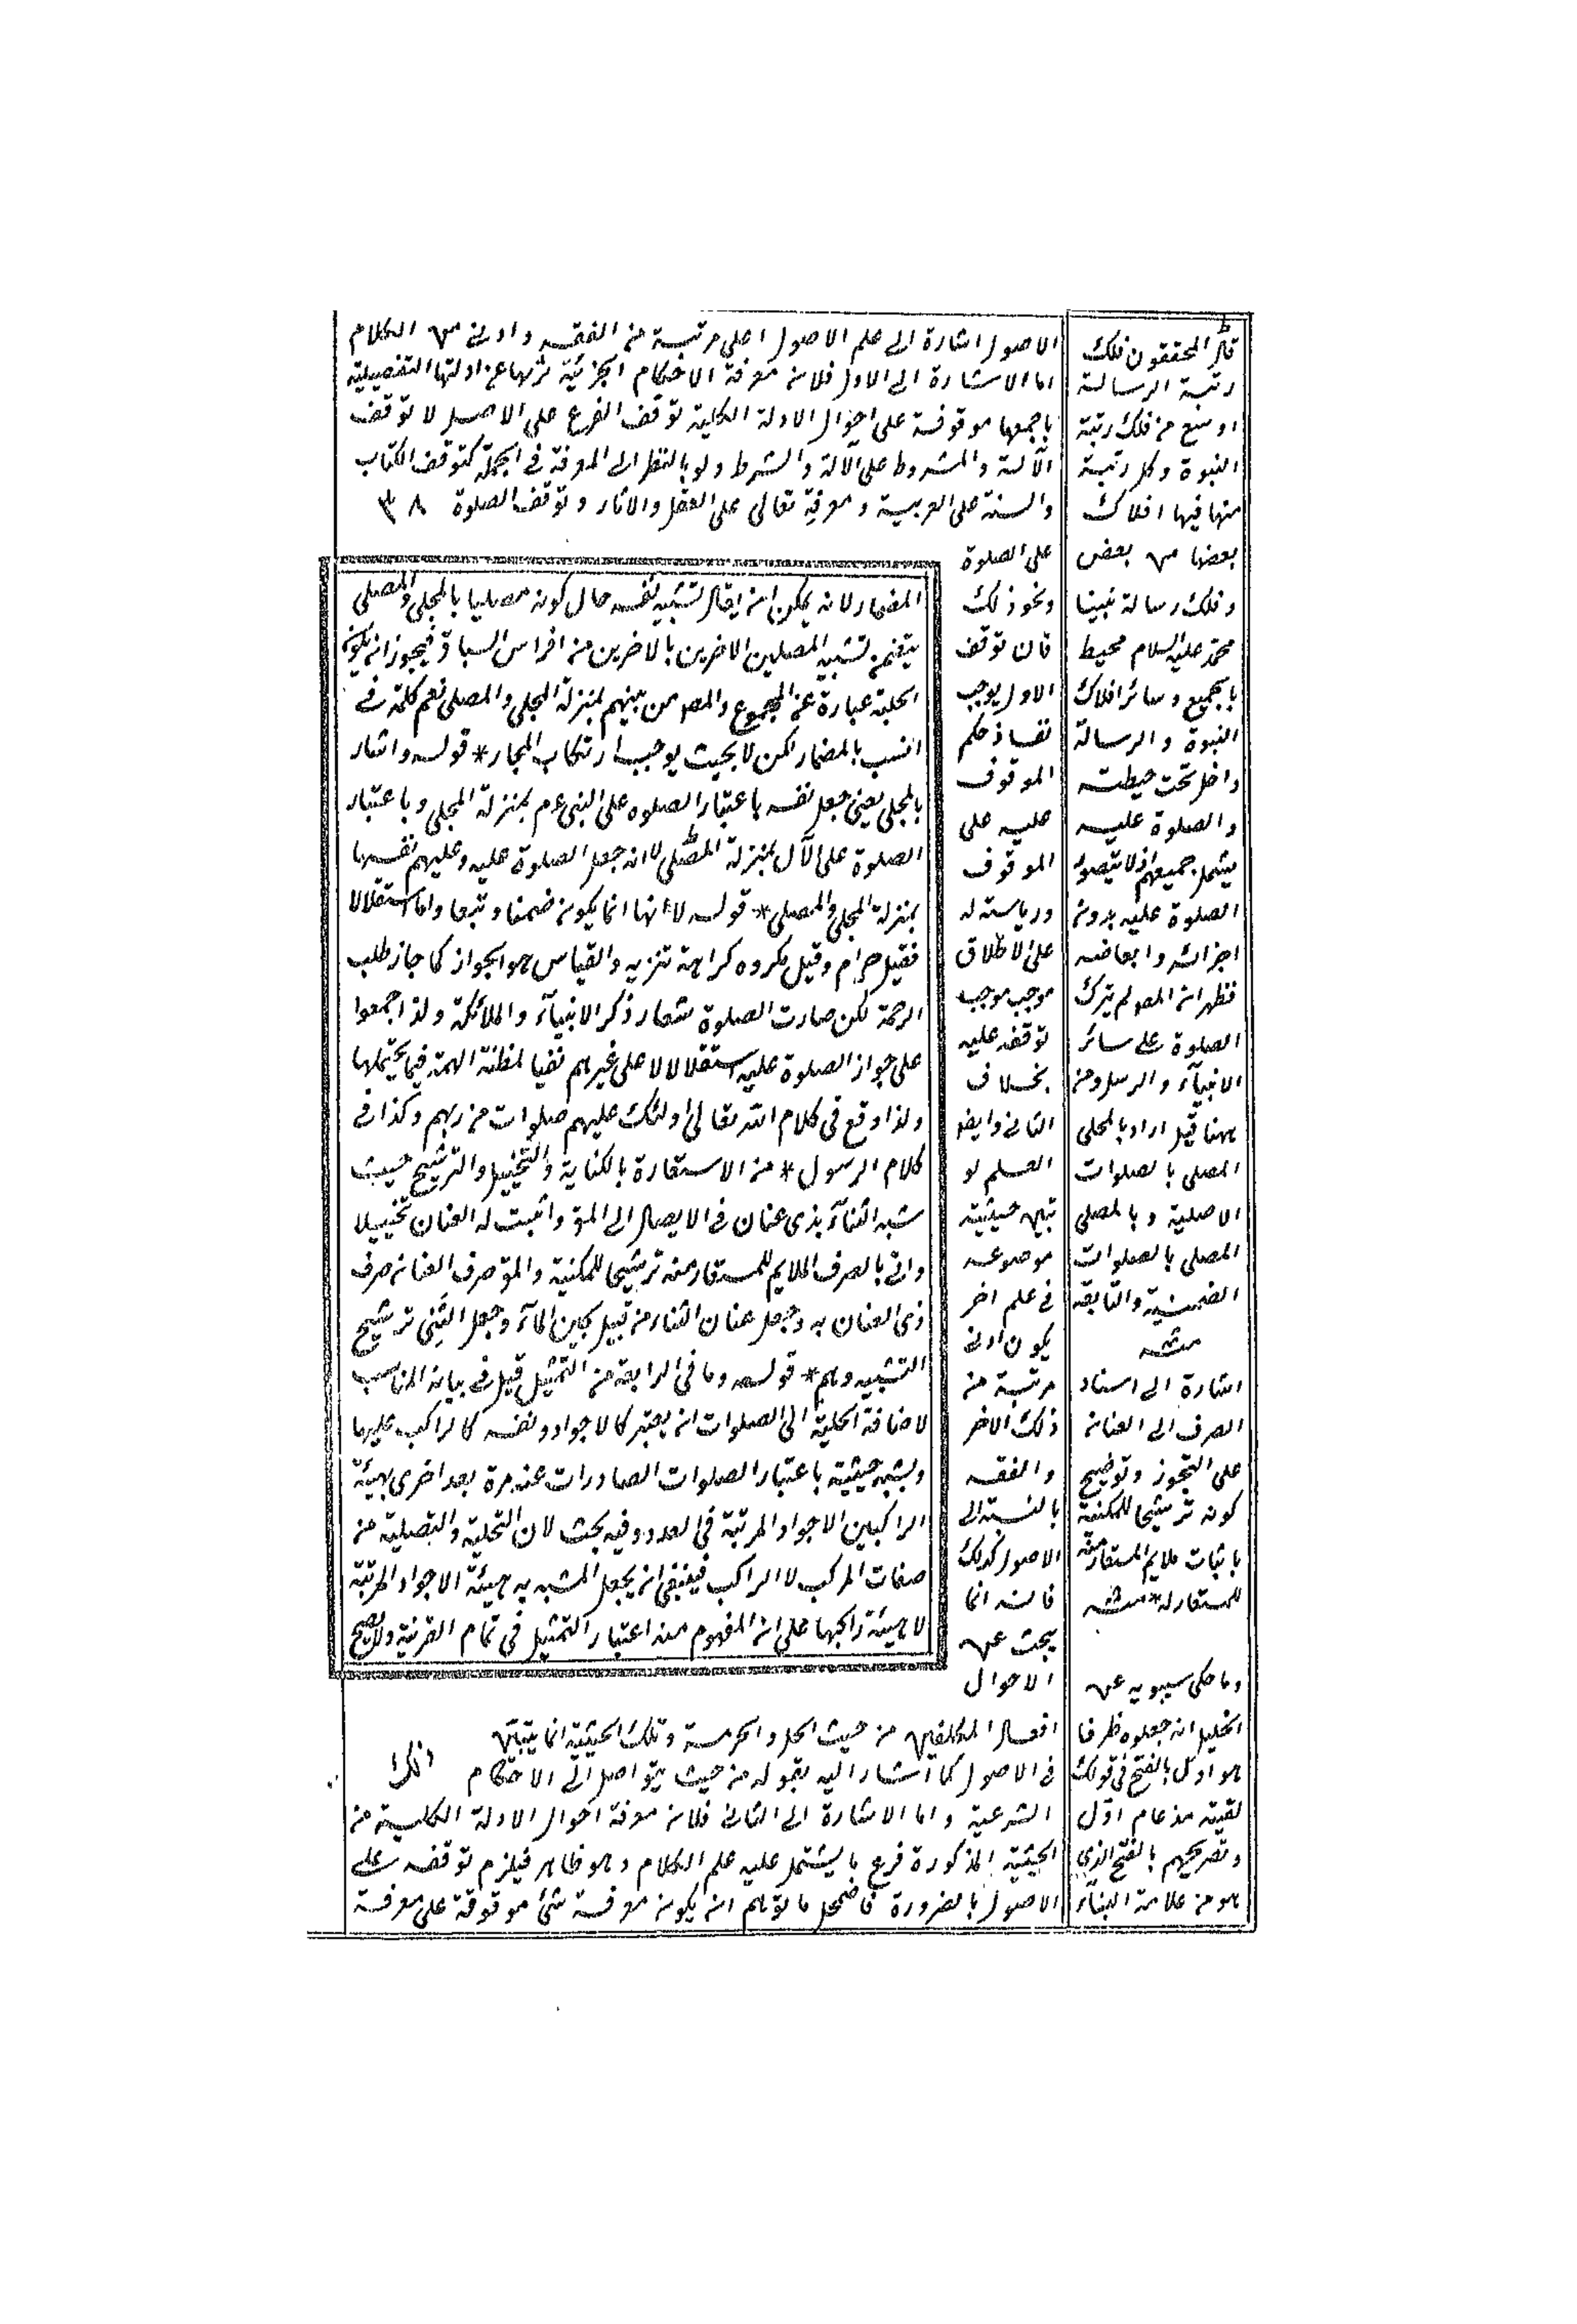 الاصول اشارة الى علم الاصول اعلى مرتبة من الفقه وادنى من الكلام
اما الاشارة الى الاول فلان معرفة الاحكام الجزئية بادلتها التفصيلية
باجمعها موقوفة على احوال الادلة الكلية توقف الفرع على الاصل لا توقف
الآلة والمشروط على الآلة والشرط ولو بالنظر الى المعرفة في الجملة كتوقف الكتاب
والسنة على العربية ومعرفته تعالى على العقل والآثار وتوقف الصلوة ٣٨
على الصلوة
ونحو ذلك
فان توقف
الاول يوجب
نفاذ حكم
الموقوف
عليه على
الموقوف
ورياسته له
على الاطلاق
موجب موجب
توقفه عليه
بخلاف
الثاني وايضا
العلم لو
تبين حيثية
موضوعه
في علم اخر
يكون ادنى
مرتبة من
ذلك الاخر
والفقه
بالنسبة الى
الاصول كذلك
فانه انما
يبحث عن
الاحوال
افعال المكلفين من حيث الحل والحرمة وتلك الحيثية انما تتبين
في الاصول كما اشار اليه بقوله من حيث يتواصل الى الاحكام
الشرعية واما الاشارة الى الثاني فلان معرفة احوال الادلة الكلية من
الحيثية المذكورة فرع ما يشتمل عليه علم الكلام وهو ظاهر فيلزم توقفه على
الاصول بالضرورة فاضمحل ما توهم ان يكون معرفة شئ موقوفة على معرفة
المضمار لانه يمكن ان يقال تشبيه نفسه حال كونه مصليا بالمجلى والمصلى
يتضمن تشبيه المصلين الاخرين بالاخرين من افراس السباق فيجوز ان يكون
الحلبة عبارة عن المجموع والمص من بينهم بمنزلة المجلى والمصلى نعم كلمة في
انسب بالمضمار لكن لا بحيث يوجب ارتكاب المجاز * قوله واشار
بالمجلى يعنى جعل نفسه باعتبار الصلوه على النبى عم بمنزلة المجلى وباعتبار
الصلوة على الآل بمنزلة المصلى لا انه جعل الصلوة عليه وعليهم نفسيهما
بمنزلة المجلى والمصلى * قوله لانها انما يكون ضمنا وتبعا واما استقلالا
فقيل حرام وقيل مكروه كراهة تنزيه والقياس هو الجواز كما جاز طلب
الرحمة لكن صارت الصلوة شعار ذكر الانبيآء والملائكة ولذا اجمعوا
على جواز الصلوة عليهم استقلالا لا على غيرهم نفيا لمظنة التهمة فيما يحتملها
ولذا وقع في كلام الله تعالى اولئك عليهم صلوات من ربهم وكذا في
كلام الرسول * من الاستعارة بالكناية والتخييل والترشيح حيث
شبه الثنآء بذى عنان في الايصال الى المق واثبت له العنان تخييلا
واتى بالصرف الملايم للمستعار منه ترشيحا للمكنية والمق صرف العنان صرف
ذى العنان به وجعل عنان الثناء من قبيل لجين المآء وجعل الثنى ترشيح
التشبيه وهم * قوله وما في الرابعة من التمثيل قيل في بيانه المناسب
لاضافة الحلبة الى الصلوات ان يعتبر كالاجواد ونفسه كالراكب عليها
ويشبه حيثية باعتبار الصلوات الصادرات عنه مرة بعد اخرى بهيئة
الراكبين الاجواد المرتبة في العدد وفيه بحث لان التجلية والتصلية من
صفات المركب لا الراكب فينبغى ان يجعل المشبه به هيئة الاجواد المرتبة
لا هيئة راكبها على ان المفهوم منه اعتبار التمثيل في تمام القرينة ولا يصح
قال المحققون فلك
رتبة الرسالة
اوسع من فلك رتبة
النبوة وكل رتبة
منها فيها افلاك
بعضها من بعض
وفلك رسالة نبينا
محمد عليه السلام محيط
بالجميع وسائر افلاك
النبوة والرسالة
داخل تحت حيطته
والصلوة عليه
يشمل جميعهم اذ لا يتصور
الصلوة عليه بدون
اجزائه وابعاضه
فظهر ان المص لم يترك
الصلوة على سائر
الانبيآء والرسل ومن
ههنا قيل اراد بالمجلى
المصلى بالصلوات
الاصلية وبالمصلى
المصلى بالصلوات
الضمنية والتابعة
منه
اشارة الى اسناد
الصرف الى العنان
على التجوز وتوضيح
كونه ترشيحا للمكنية
باثبات ملايم المستعار منه
للمستعار له * منه
وما حكى سيبويه عن
الخليل انه جعلوه ظرفا
هو اول بالفتح في قولك
لقيته مذ عام اول
وتصريحهم بالفتح الذي
هو من علامة البنآء